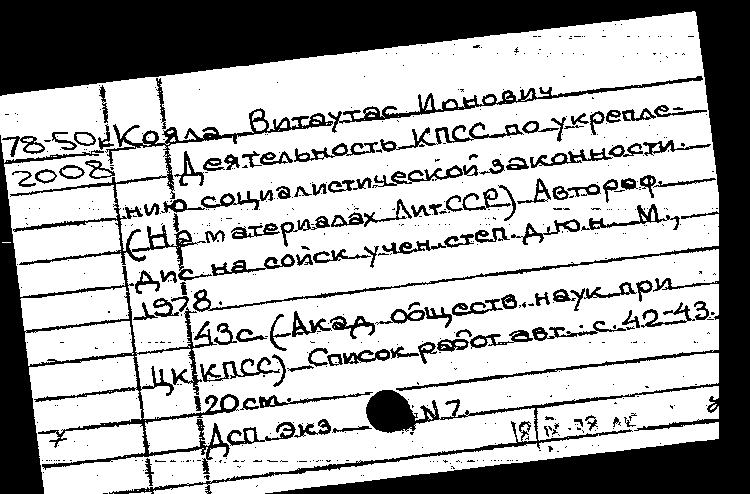 78-50н Кояла, Витаутас Ионович
2008 Деятельность КПСС по укрепле-
нию социалистической законности.
(На материалах Лит.ССР) Автореф.
дис на соиск учен. степ. д.ю.н М.,
1978.
43с. (Акад. обществ. наук при
ЦК КПСС) Список работ авт.: с. 42-43.
20см.
Дсп. Экз. N7.